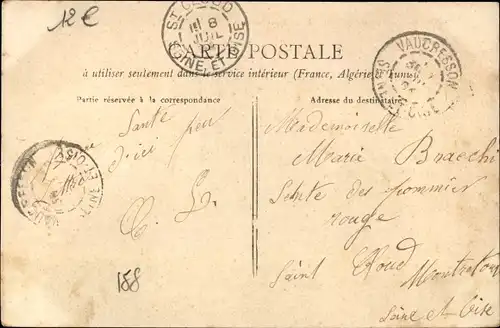 12€
ST CLOUD
8
JUIL
SEINE ET OISE
CARTE POSTALE
à utiliser seulement dans le service intérieur (France, Algérie & Tunisie)
VAUCRESSON
SEINE-ET-OISE
Partie réservée à la correspondance
Adresse du destinataire
Santé
d'ici
Mademoiselle
Marie Bracchi
Sente des pommier
rouge
Saint Cloud Montretout
Seine et Oise
SEINE ET OISE
158